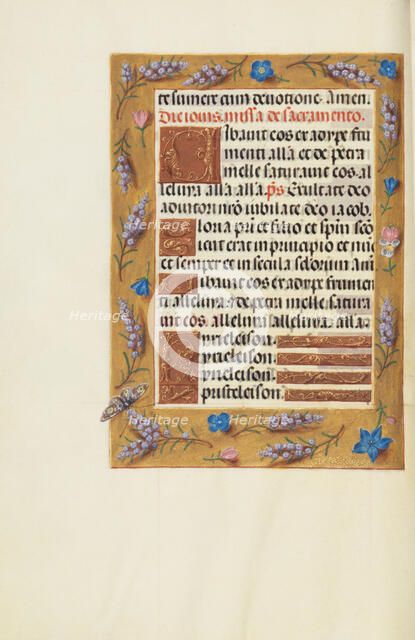 te sumere cum devotione. amen.
Die iovis missa de sacramento.
Cibavit eos ex adipe fru
menti alla et de petra
melle saturavit eos. al
leluia alla alla. ps Exultate deo
adiutori nro iubilate deo iacob.
Gloria patri et filio et spiri scō
Sicut erat in principio et nūc
et semper et in secula seclorum am
Cibavit eos ex adipe frumen
ti alleluia. et de petra melle satura
vit eos. alleluia alleluia. alla
Kyrieleison.
Kyrieleison.
Kyrieleison.
Xpristeleison.
Heritage
Heritage
Heritage
Heritage
Heritage
Heritage